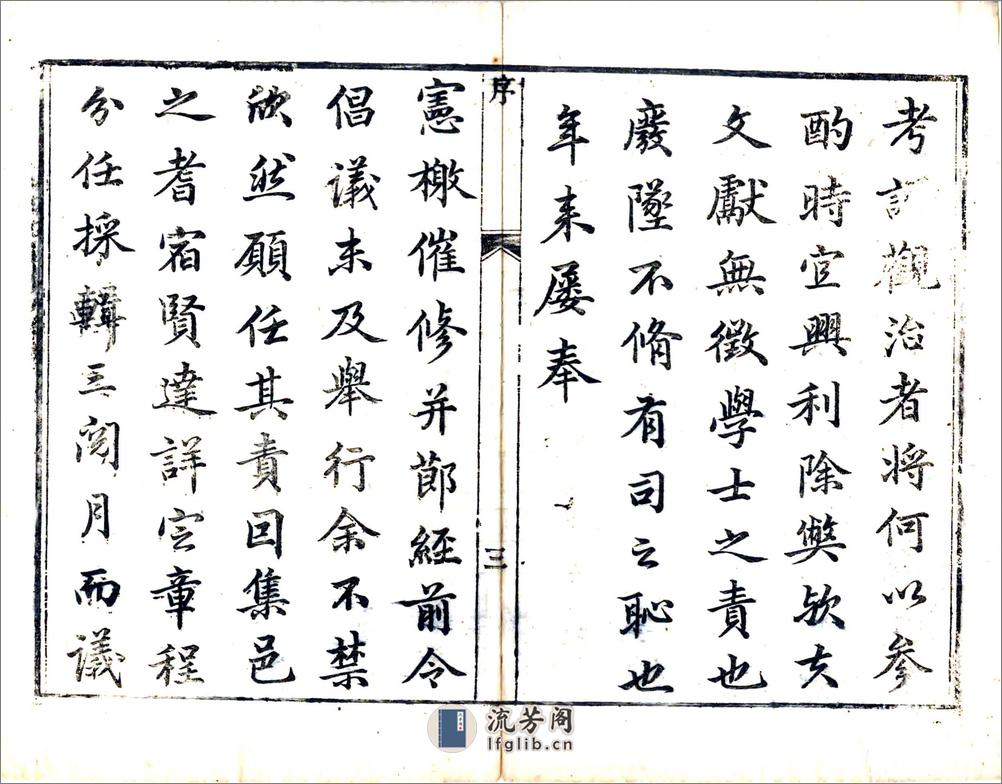 考訂觀治者將何以參
酌時宜興利除弊歟夫
文獻無徵學士之責也
廢墜不脩有司之恥也
年来屡奉
序
三
憲檄催修并節經前令
倡議未及舉行余不禁
欣然願任其責因集邑
之耆宿賢達詳定章程
分任採輯三閲月而議
流芳阁
lfglib.cn